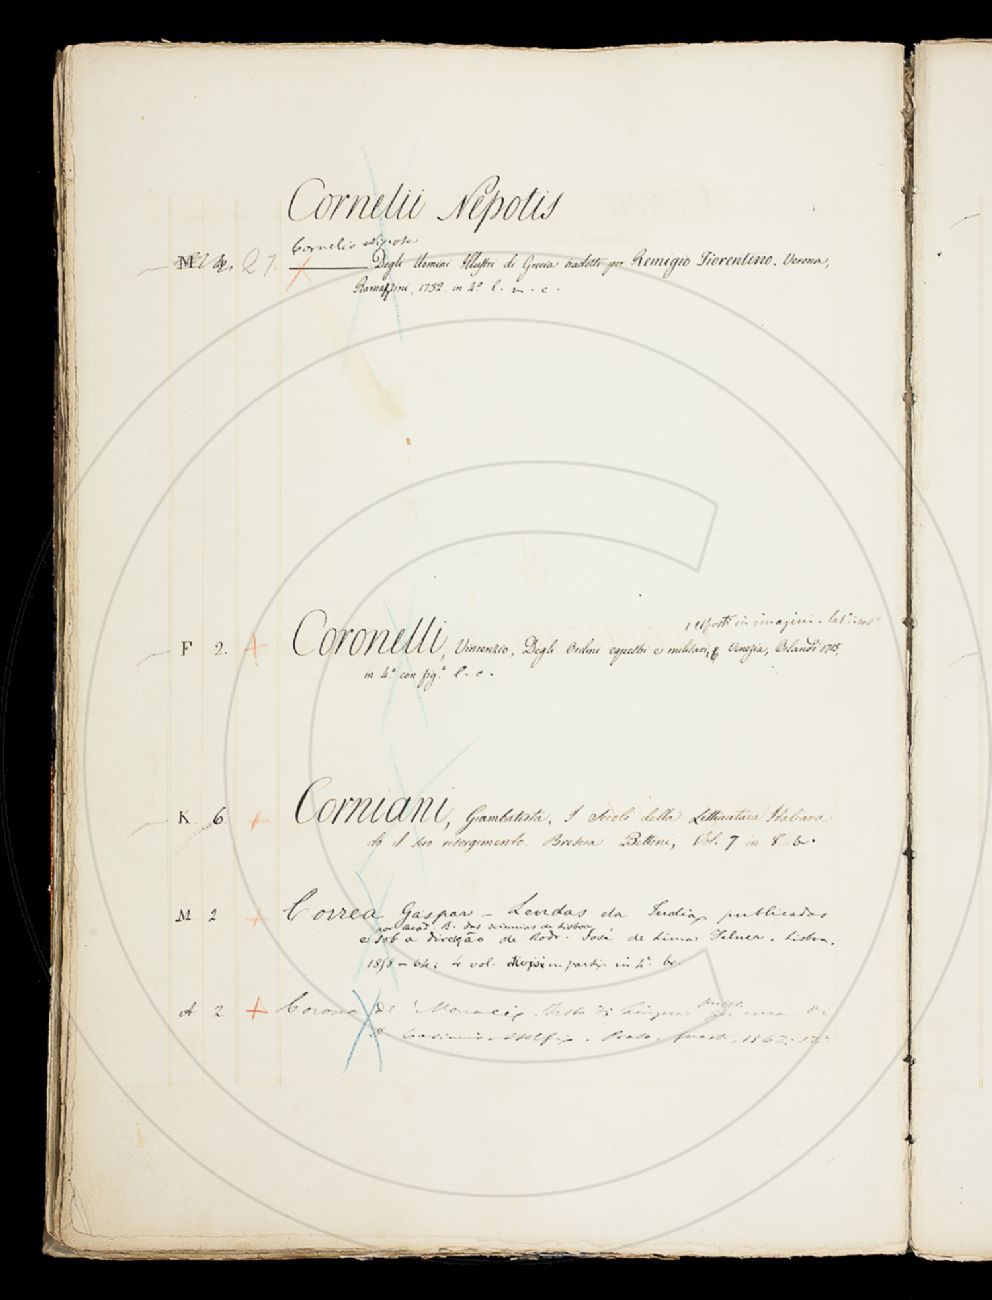 Cornelii Nepotis
Cornelio Nipote
M Q 7. Degli Uomini Illustri di Grecia tradotti per Remigio Fiorentino. Verona,
Ramazzini, 1732 in 4.º l. - c.
esposti in imagini.
F 2. Coronelli, Vincenzio, Degli Ordini equestri e militari, Venezia, Orlandi 1715,
in 4.º con fig.e l. c.
K 6. Corniani, Giambatista, I Secoli della Letteratura Italiana
do il suo risorgimento. Brescia Bettoni, Vol. 7 in 8.º b.
M 2 Correa Gaspar - Lendas da India publicadas
por Acad. R. das sciencias de Lisboa,
e sob a direcção de Rodr. José de Lima Felner. Lisboa,
1858-64: 4 vol. in parti in 4.º b.
A 2 Corona de' Monaci, Testo di Lingua
Casimiro Stolfi. Prato, Guasti, 1862, 12.º